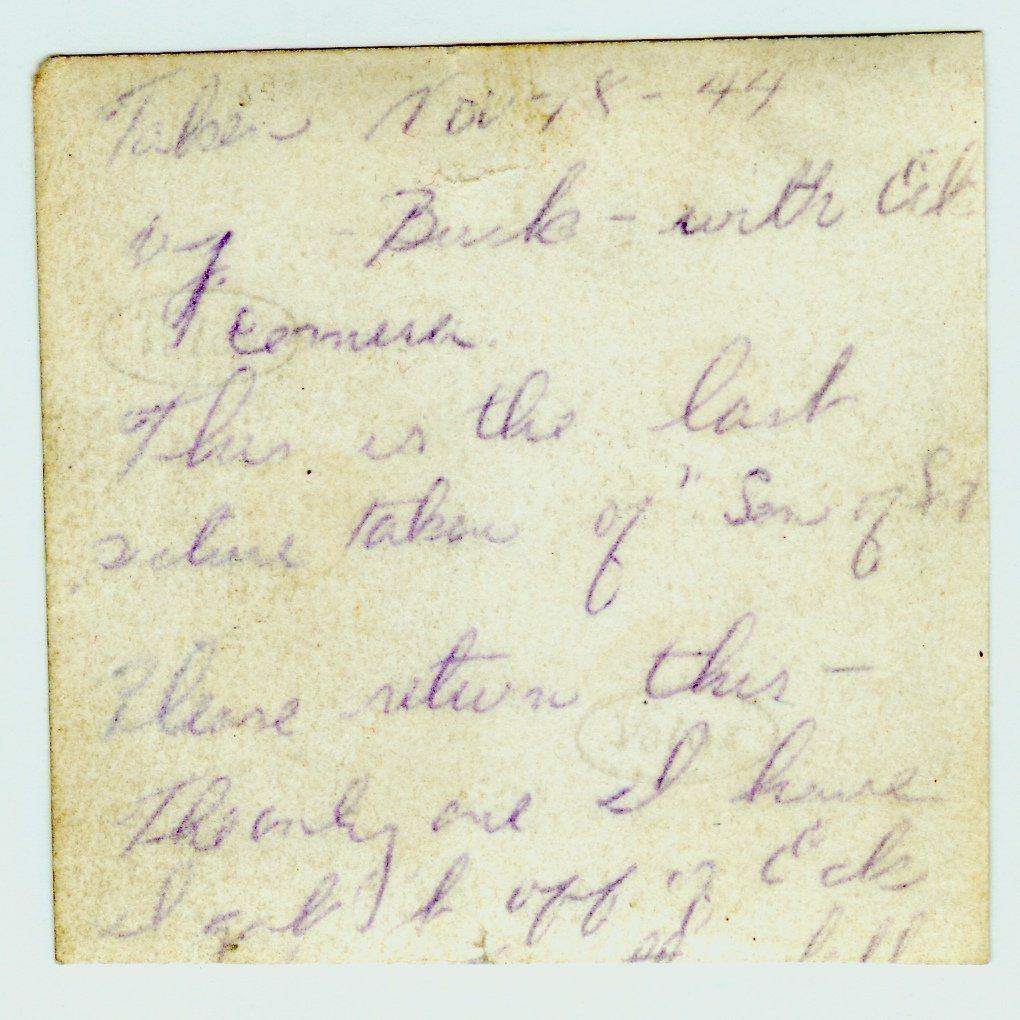 Taken Nov-18-44
by - Buck - with Eck
camera.
This is the last
picture taken of "Son of
Please return this -
The only one I have
I got it off of Eck